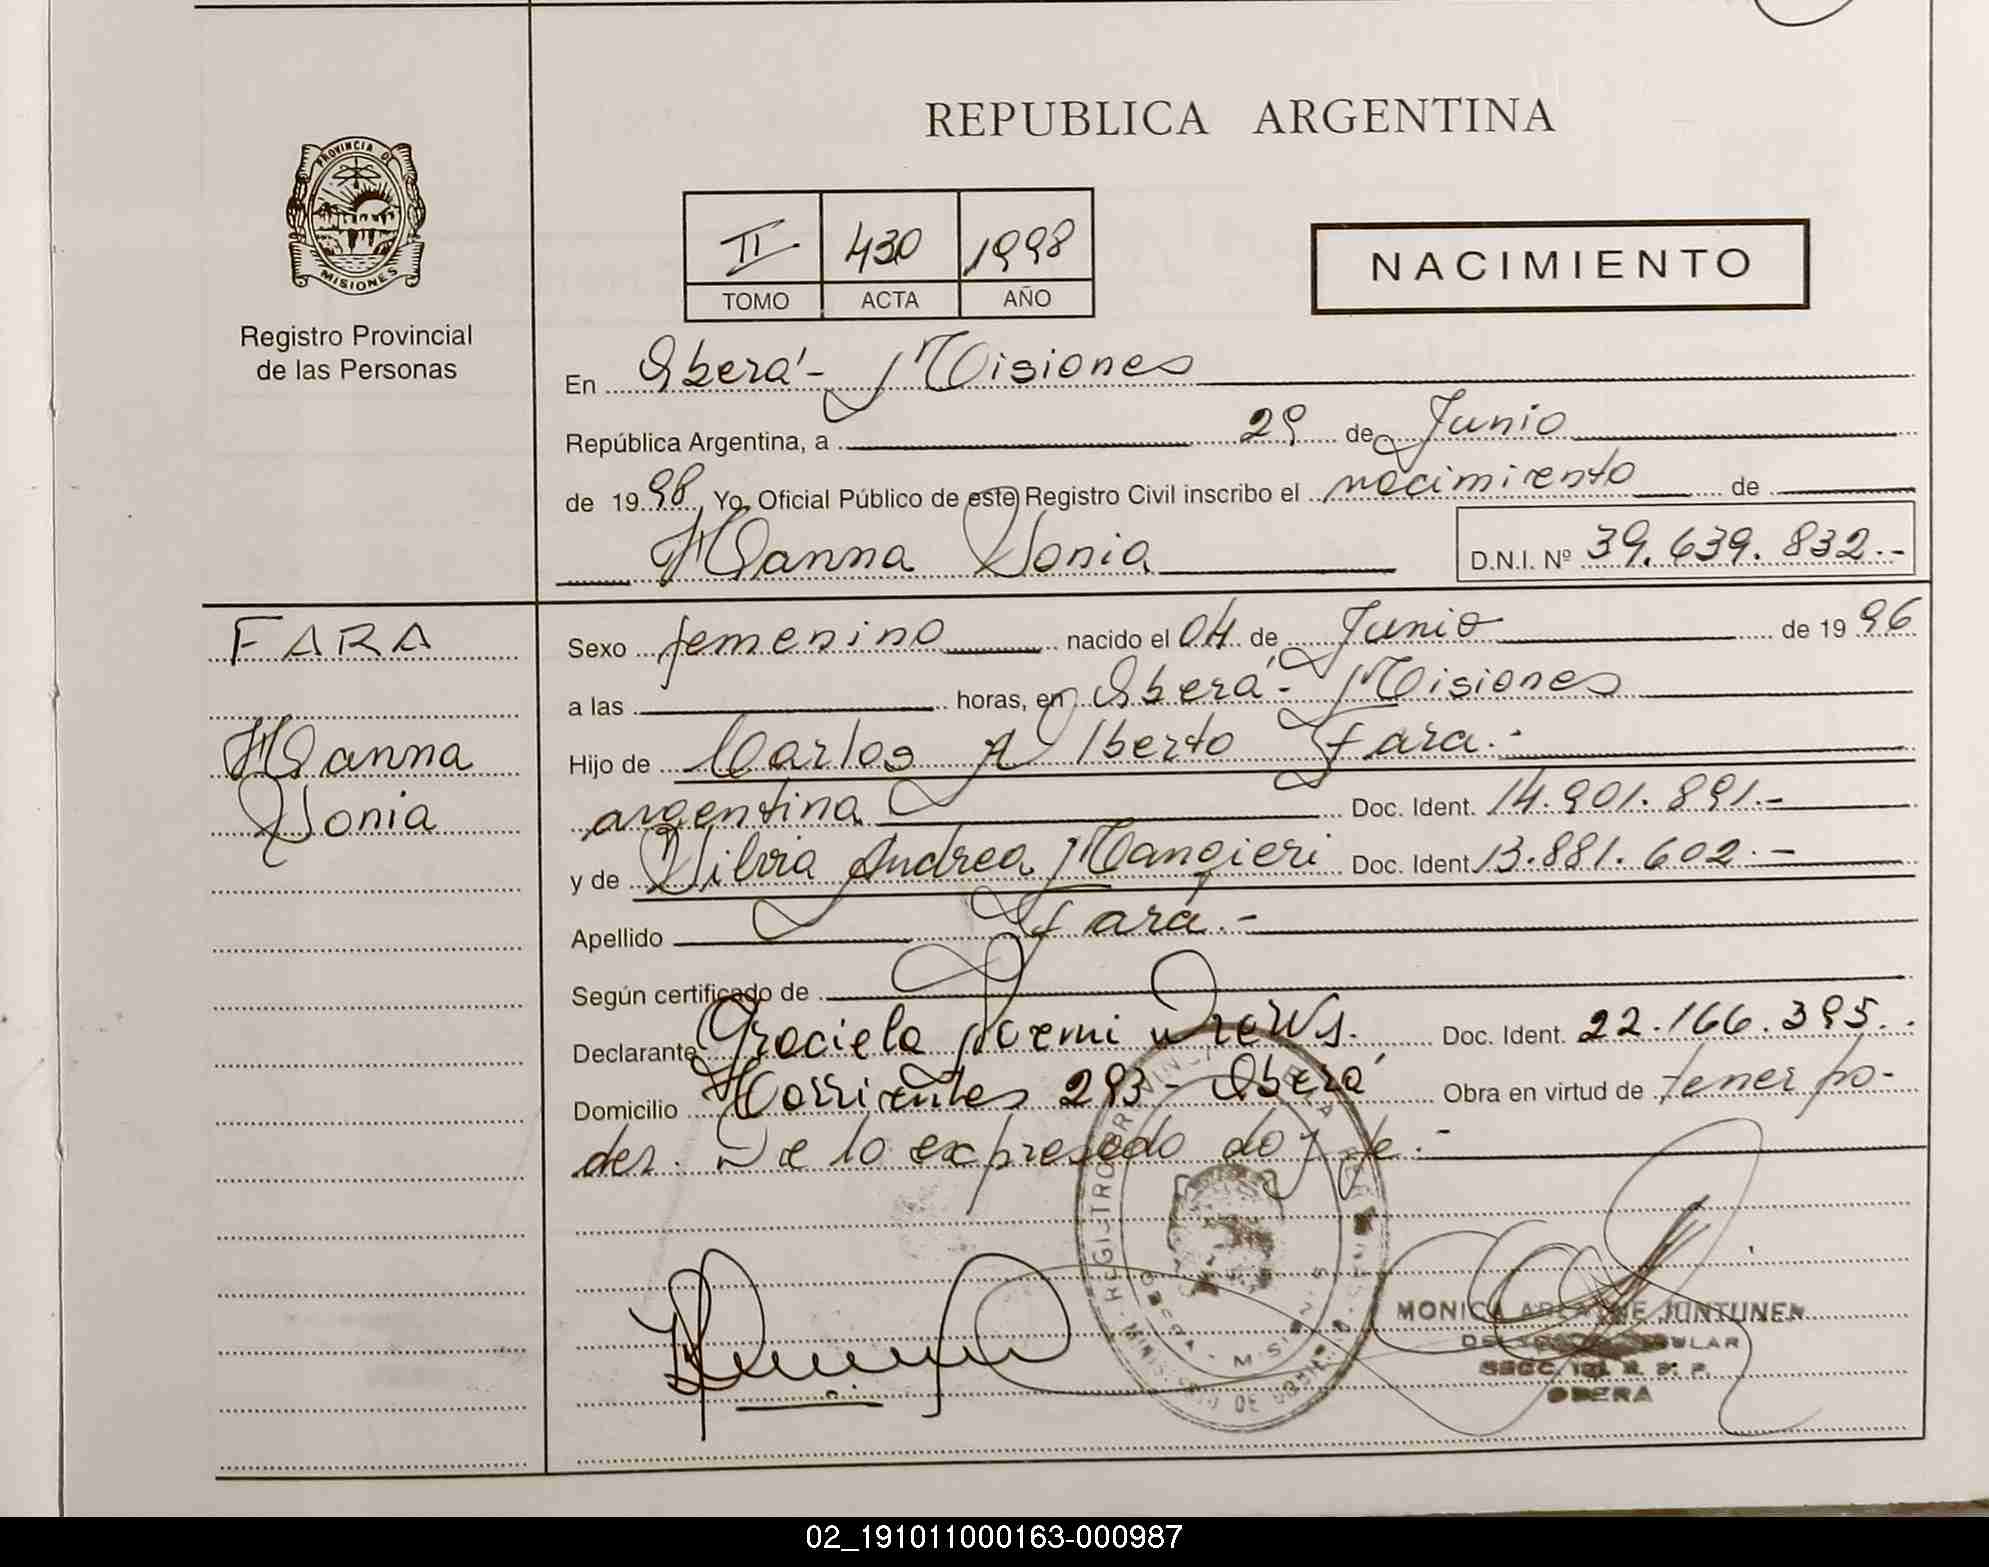 REPUBLICA ARGENTINA
PROVINCIA DE
MISIONES
Registro Provincial
de las Personas
II 430 1998
TOMO ACTA AÑO
NACIMIENTO
En Oberá - Misiones
República Argentina, a 29 de Junio
de 1998 Yo, Oficial Público de este Registro Civil inscribo el nacimiento de
Hanna Sonia D.N.I. Nº 39.639.832.-
FARA
Hanna
Sonia
Sexo femenino nacido el 04 de Junio de 1996
a las horas, en Oberá - Misiones
Hijo de Carlos Alberto Fara.-
argentina Doc. Ident. 14.901.891.-
y de Silvia Andrea Mangieri Doc. Ident. 13.881.602.-
Apellido Fara.-
Según certificado de
Declarante Graciela Noemi Drews. Doc. Ident. 22.166.395.
Domicilio Corrientes 293 - Oberá Obra en virtud de tener po-
der. De lo expresado doy fe.-
MONICA JUNTUNEN
OBERA
02_191011000163-000987